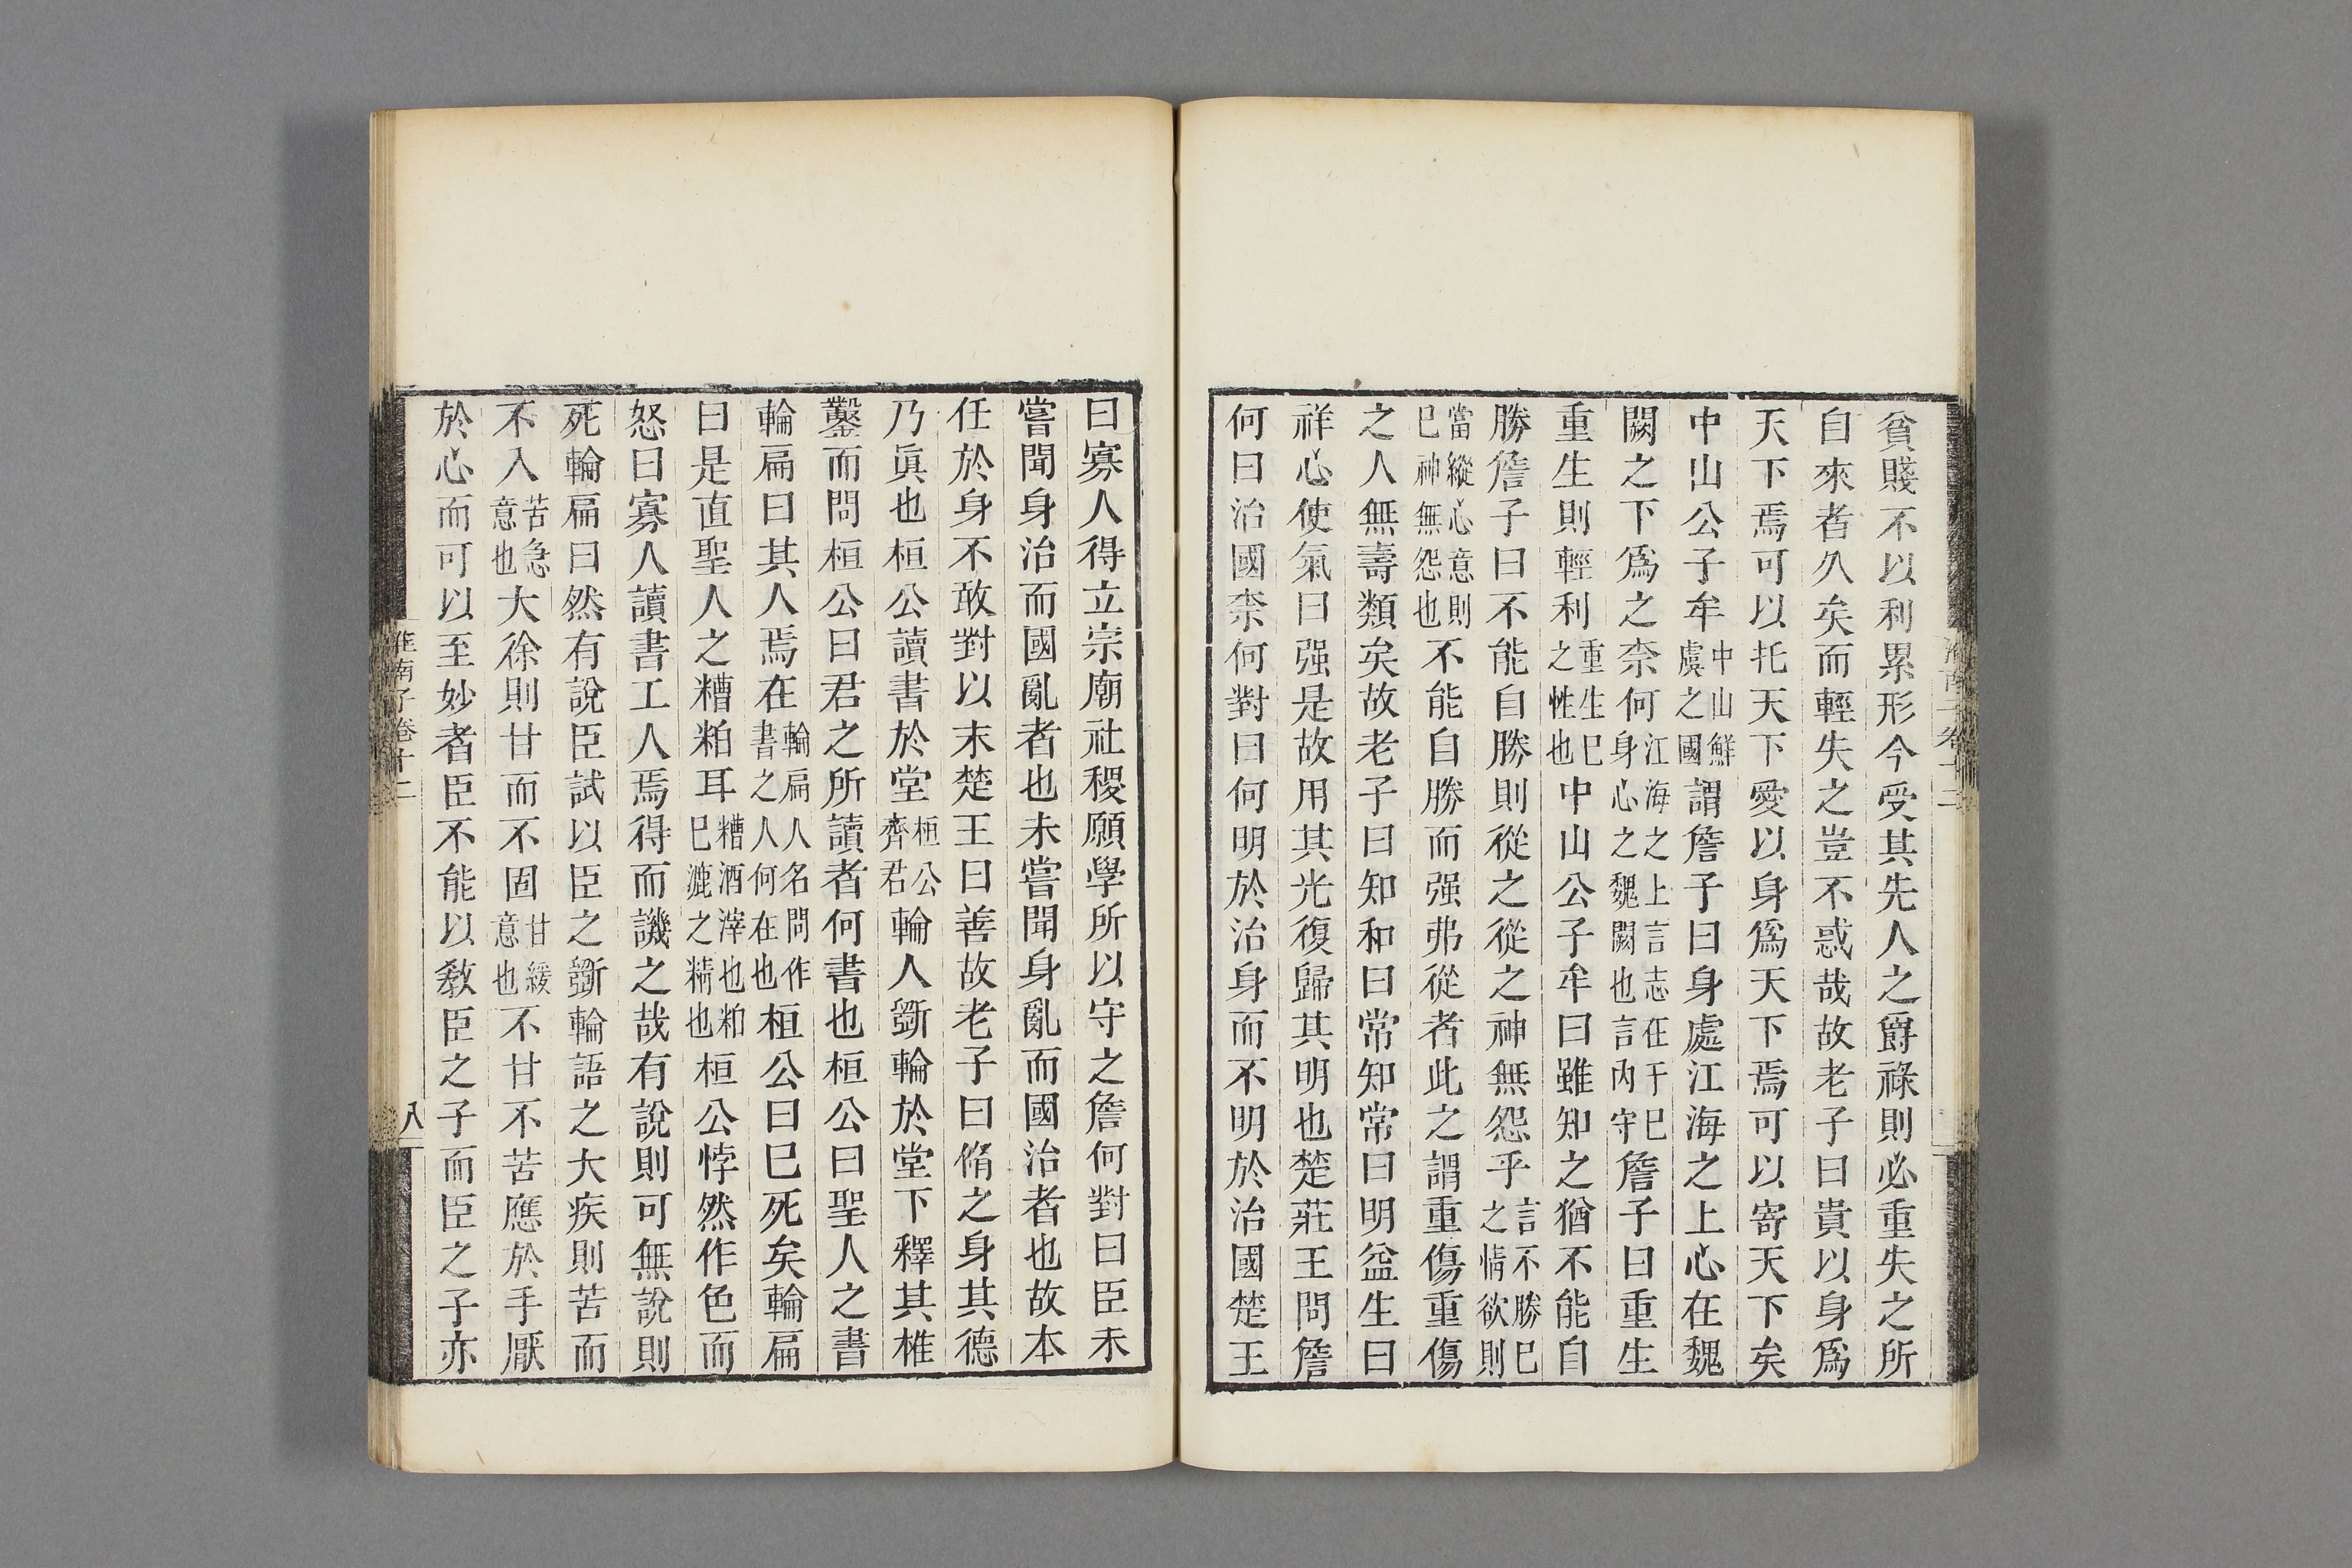 貧賤不以利累形今受其先人之爵祿則必重失之所
自來者久矣而輕失之豈不惑哉故老子曰貴以身爲
天下焉可以托天下愛以身爲天下焉可以寄天下矣
中山公子牟中山鮮虞之國謂詹子曰身處江海之上心在魏
闕之下爲之柰何江海之上言志在于巳身心之魏闕也言内守詹子曰重生
重生則輕利重生巳之性也中山公子牟曰雖知之猶不能自
勝詹子曰不能自勝則從之從之神無怨乎言不勝巳之情欲則
當縱心意則巳神無怨也不能自勝而强弗從者此之謂重傷重傷
之人無壽類矣故老子曰知和曰常知常曰明益生曰
祥心使氣曰强是故用其光復歸其明也楚莊王問詹
何曰治國柰何對曰何明於治身而不明於治國楚王
曰寡人得立宗廟社稷願學所以守之詹何對曰臣未
嘗聞身治而國亂者也未嘗聞身亂而國治者也故本
任於身不敢對以末楚王曰善故老子曰脩之身其德
乃眞也桓公讀書於堂桓公齊君輪人斲輪於堂下釋其椎
鑿而問桓公曰君之所讀者何書也桓公曰聖人之書
輪扁曰其人焉在輪扁人名問作書之人何在也桓公曰巳死矣輪扁
曰是直聖人之糟粕耳糟酒滓也粕巳漉之精也桓公悖然作色而
怒曰寡人讀書工人焉得而譏之哉有說則可無說則
死輪扁曰然有說臣試以臣之斲輪語之大疾則苦而
不入苦急意也大徐則甘而不固甘緩意也不甘不苦應於手厭
於心而可以至妙者臣不能以敎臣之子而臣之子亦
淮南子卷十二
八